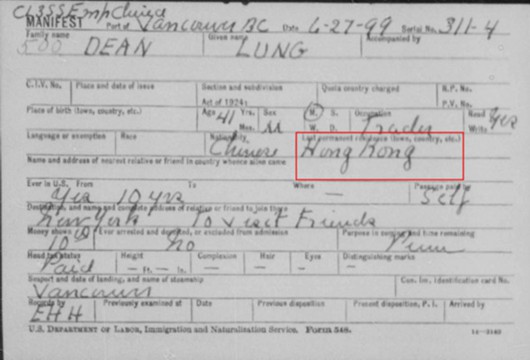 Cl 355 Emp China
MANIFEST Port of Vancouver BC Date 6-27-99 Serial No. 311-4
Family name Given name Accompanied by
500 DEAN LUNG
C.I.V. No. Place and date of issue Section and subdivision Quota country charged R.P. No.
Act of 1924: P.V. No.
Place of birth (town, country, etc.) Age 41 Yrs. Sex M. S. Occupation Read Yes
Mos. M W. D. Trader Write
Language or exemption Race Nationality Last permanent residence (town, country, etc.)
Chinese Hong Kong
Name and address of nearest relative or friend in country whence alien came
Ever in U.S. From To Where Passage paid by
Yes 10 yrs — Self
Destination, and name and complete address of relative or friend to join there
New York To visit Friends
Money shown Ever arrested and deported, or excluded from admission Purpose in coming and time remaining
10 No Perm
Head tax status Height Complexion Hair Eyes Distinguishing marks
Paid — Ft. — In. — — —
Seaport and date of landing, and name of steamship Con. Inv. Identification card No.
Vancouver
Records by Previously examined at Date Previous disposition Present disposition, P.I. Arrived by
EHH
U.S. DEPARTMENT OF LABOR, Immigration and Naturalization Service. Form 548. 14—3140